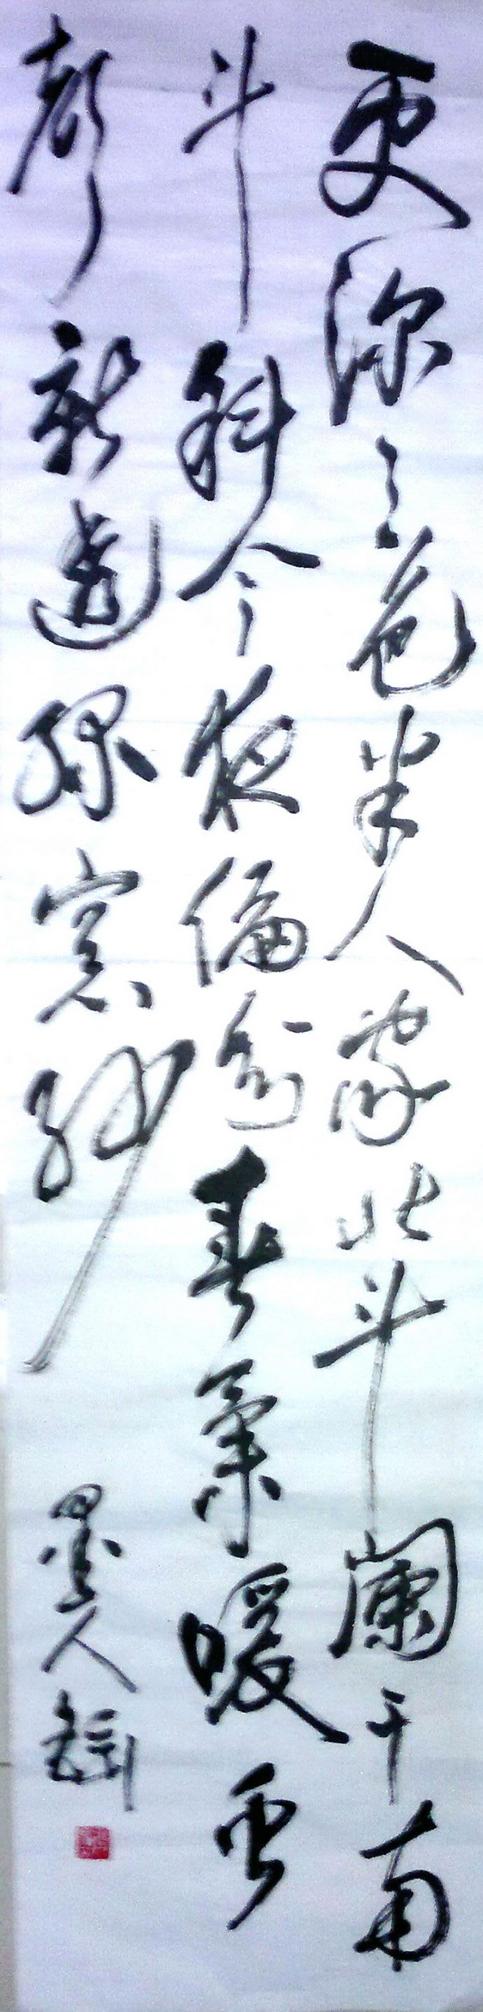 更深月色半人家北斗闌干南
斗斜今夜偏知春氣暖虫
聲新透綠窗紗
墨人